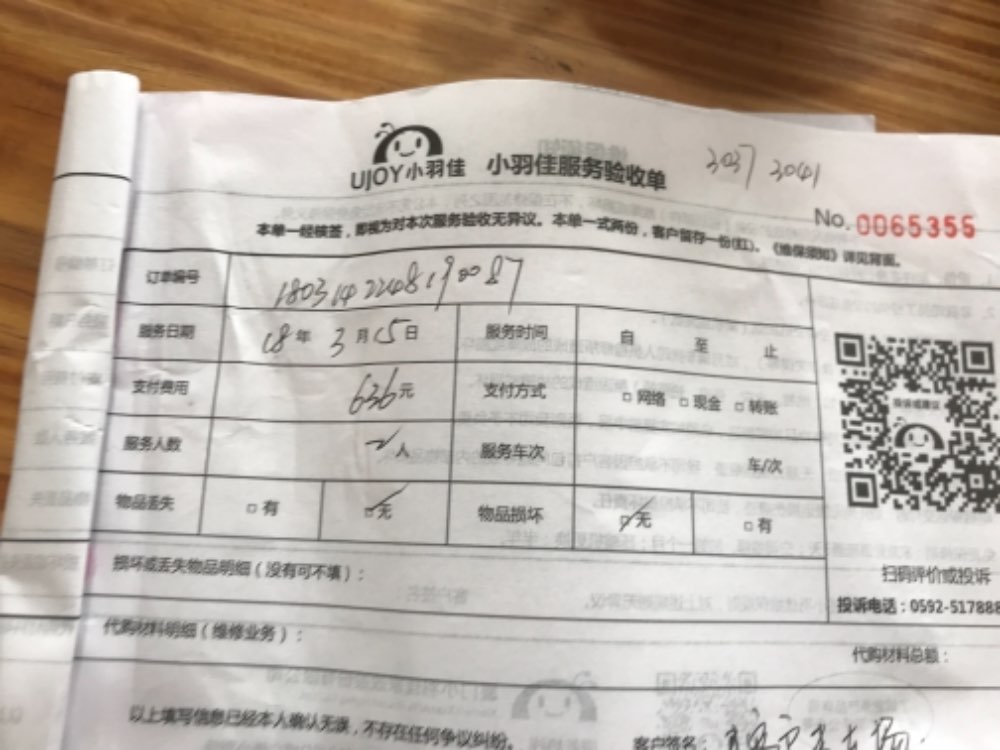 UJOY小羽佳 小羽佳服务验收单 3037 3041
No. 0065355
本单一经核签，即视为对本次服务验收无异议。本单一式两份，客户留存一份(红)。《维保须知》详见背面。
订单编号 1803142248190087
服务日期 18年 3月15日 服务时间 自 至 止
支付费用 636元 支付方式 □网络 □现金 □转账
服务人数 2人 服务车次 车/次
物品丢失 □有 ☑无 物品损坏 ☑无 □有
投诉或建议
扫码评价或投诉
投诉电话：0592-517888
损坏或丢失物品明细（没有可不填）：
代购材料明细（维修业务）：
代购材料总额：
以上填写信息已经本人确认无误，不存在任何争议纠纷。
客户签名：